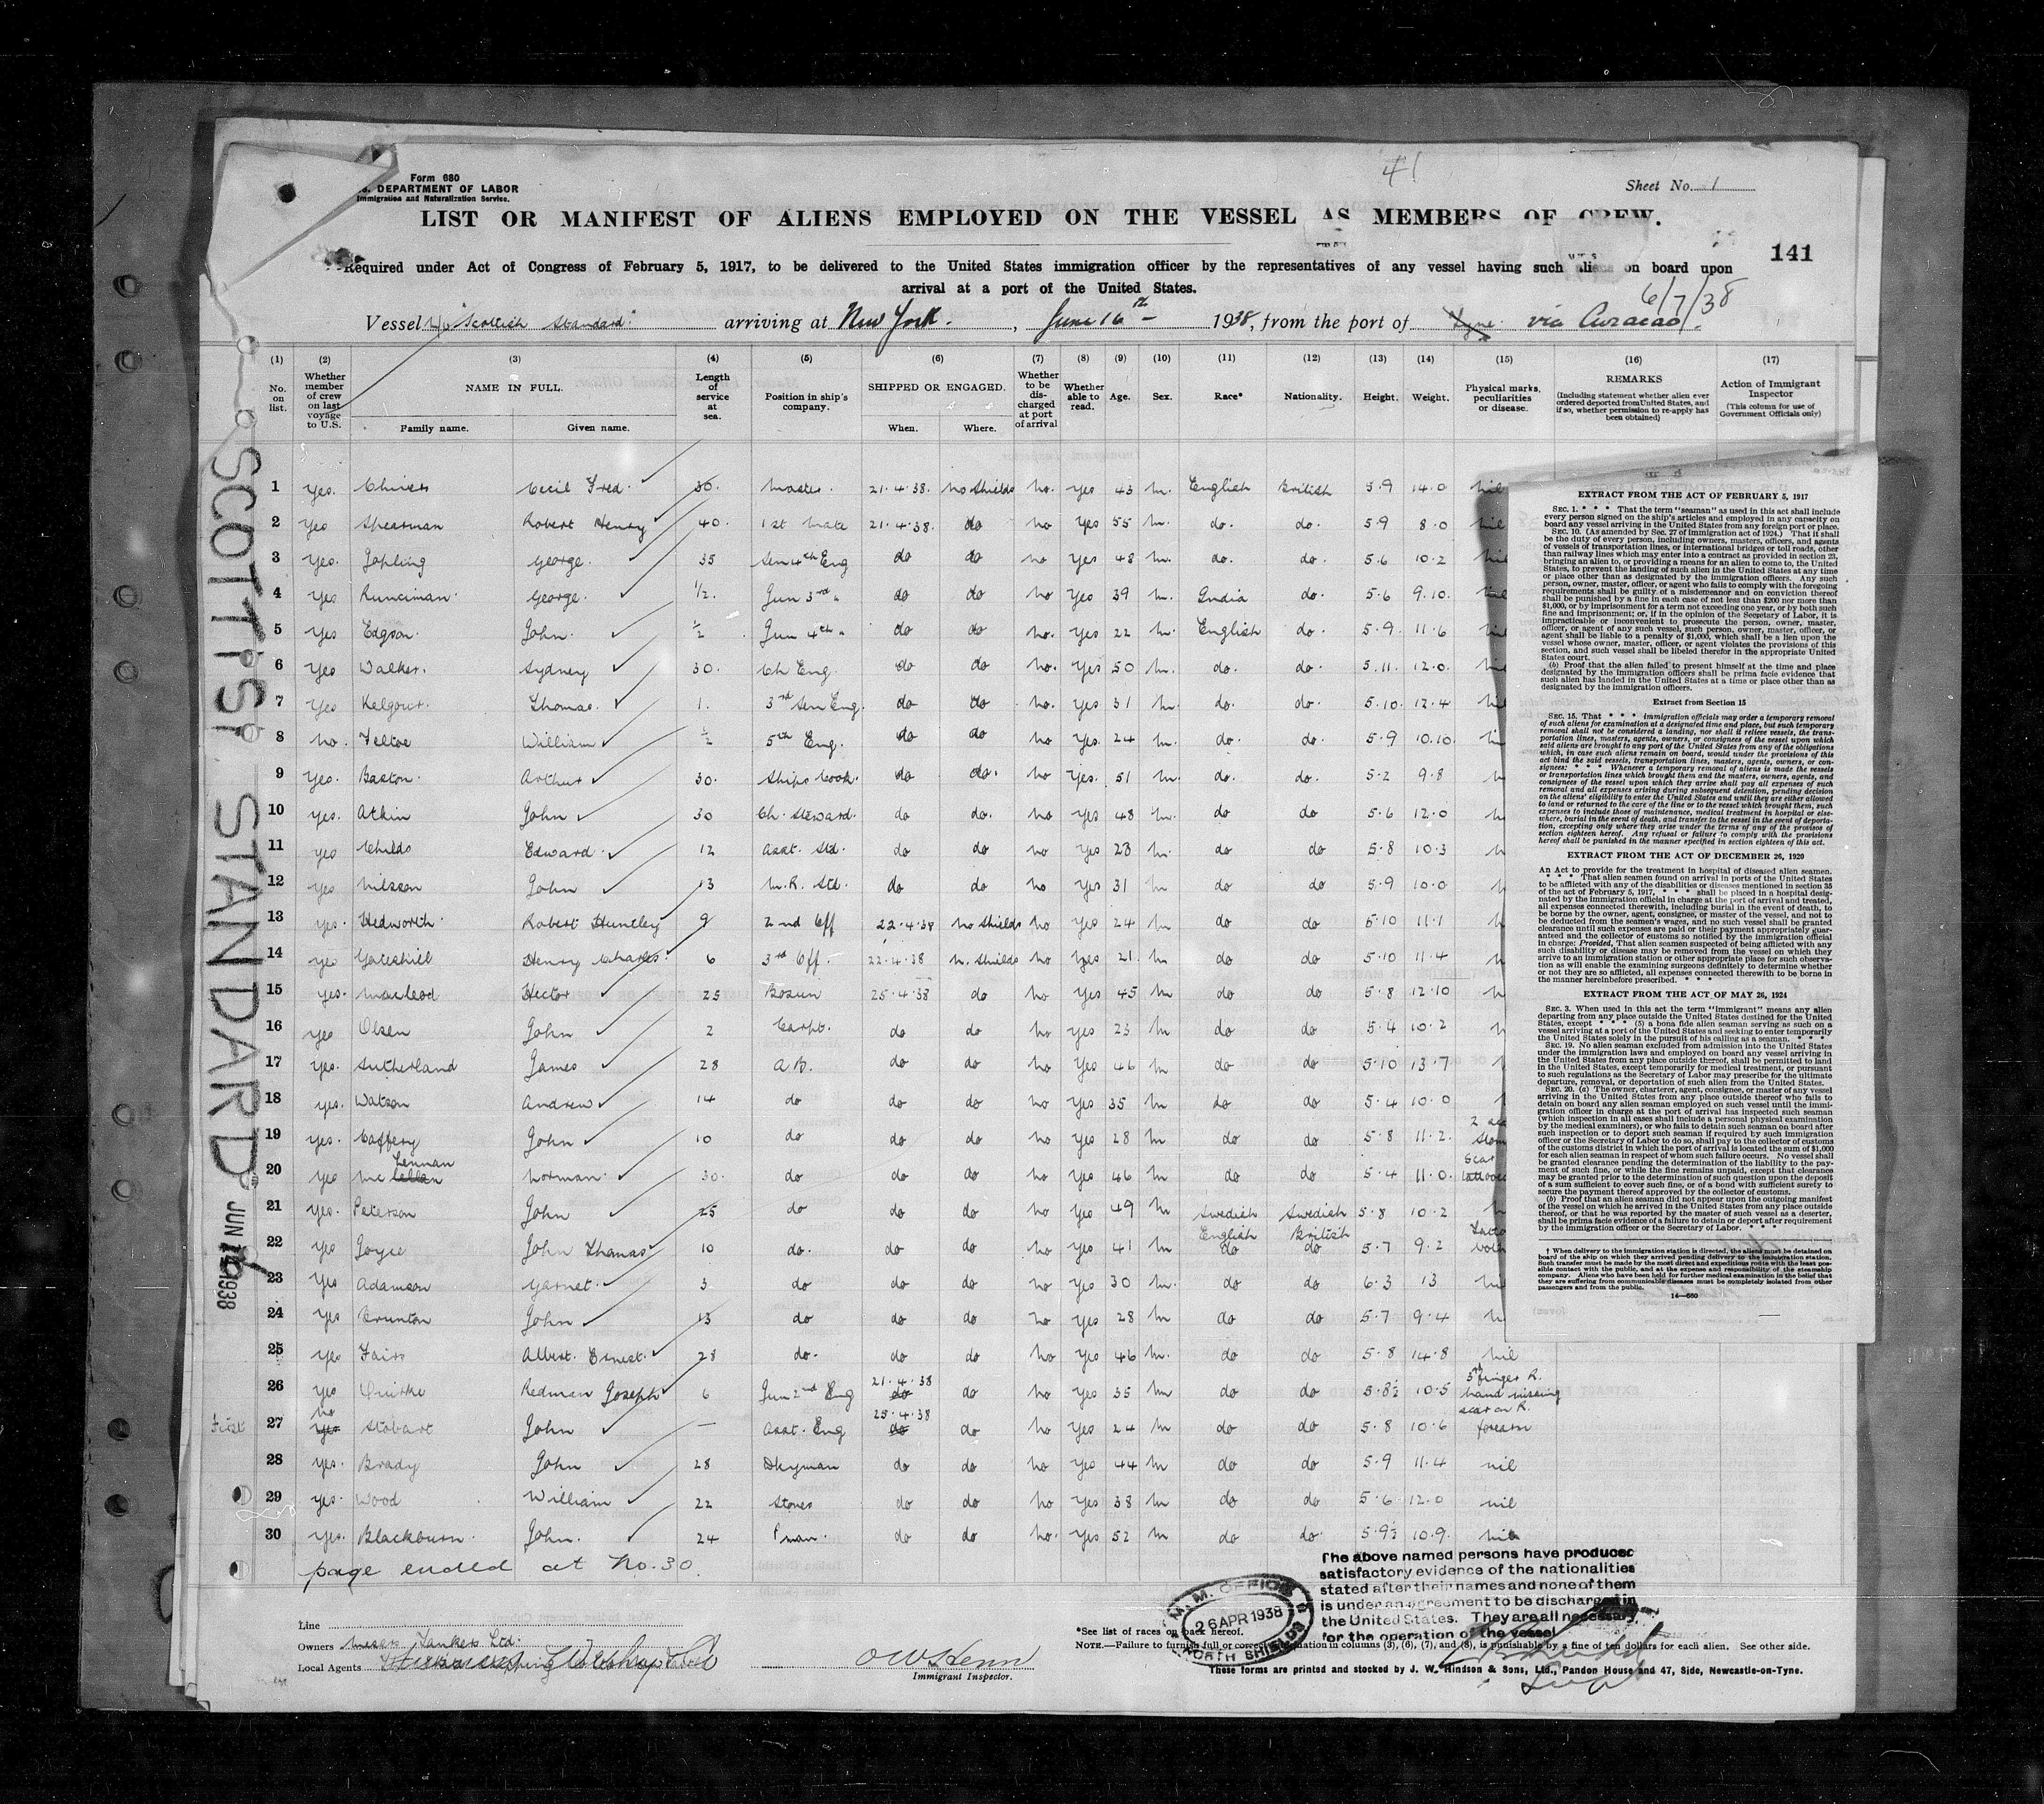 41
Form 680
DEPARTMENT OF LABOR
Immigration and Naturalization Service.
Sheet No. 1
LIST OR MANIFEST OF ALIENS EMPLOYED ON THE VESSEL AS MEMBERS OF CREW.
141
Required under Act of Congress of February 5, 1917, to be delivered to the United States immigration officer by the representatives of any vessel having such aliens on board upon
arrival at a port of the United States.
6/7/38
Vessel "Scottish Standard" arriving at New York. , June 16th 1938, from the port of Tyne via Curacao.
(1) (2) (3) (4) (5) (6) (7) (8) (9) (10) (11) (12) (13) (14) (15) (16) (17)
No. on list. Whether member of crew on last voyage to U.S. NAME IN FULL. Family name. Given name. Length of service at sea. Position in ship's company. SHIPPED OR ENGAGED. When. Where. Whether to be discharged at port of arrival Whether able to read. Age. Sex. Race* Nationality. Height. Weight. Physical marks, peculiarities or disease. REMARKS (Including statement whether alien ever ordered deported from United States, and if so, whether permission to re-apply has been obtained) Action of Immigrant Inspector (This column for use of Government Officials only)
1 Yes. Cecil Fred. 30. Master. 21.4.38. No Shields no. yes 43 m. English British 5.9 14.0 nil
2 Yes Spearman Robert Henry 40. 1st Mate 21.4.38. do no Yes 55 m. do. do. 5.9 8.0
3 Yes. Jopling George. 35 Sen 4th Eng do do no Yes 48 m. do. do. 5.6 10.2
4 Yes Runciman. George. 1/2. Jun 3rd " do do no Yes 39 m. India do. 5.6 9.10.
5 Yes Edgson. John. 1/2 Jun 4th " do do no. Yes 22 m. English do. 5.9. 11.6
6 Yes Walker. Sydney 30. Ch Eng. do do no. Yes 50 m. do. do. 5.11. 12.0.
7 Yes Kelgour. Thomas. 1. 3rd Sen Eng. do do no. Yes 31 m. do. do. 5.10. 12.4
8 no. Feltoe William 1/2 5th Eng. do do no Yes. 24 m. do. do. 5.9 10.10.
9 Yes. Barton. Arthur 30. Ships Cook. do do. no Yes. 51 m. do. do. 5.2 9.8
10 yes. Atkin John 30 Ch. Steward. do do. no Yes 48 m. do do 5.6 12.0
11 yes Childs Edward. 12 Asst. Std. do do no Yes 23 m. do do 5.8 10.3
12 yes Nilsson John 13 M.R. Std. do do no Yes 31 m do do 5.9 10.0
13 yes. Hedworth. Robert Huntley 9 2nd Off 22.4.38 No Shields no yes 24 m do do 5.10 11.1
14 yes Gateshill Henry Charles. 6 3rd Off. 22.4.38 N. Shields no yes 21 m do do 5.10 11.4
15 yes. Macleod Hector 25 Bosun 25.4.38 do no Yes 45 m do do 5.8 12.10
16 yes Olsen John 2 Carpt. do do no yes 23 m do do 5.4 10.2
17 yes. Sutherland James 28 A.B. do do no Yes 46 m do do 5.10 13.7
18 yes. Watson Andrew 14 do do do no Yes 35 m do do 5.4 10.0
19 yes. Caffery John 10 do do do no Yes 28 m do do 5.8 11.2.
20 yes Mc Lennan Norman 30. do do do no Yes 46 m do do 5.4 11.0. scar
21 yes. Peterson John 25 do do do no Yes 49 m Swedish Swedish 5.8 10.2
22 Yes Joyce John Thomas 10 do. do do no Yes 41 m English do British do 5.7 9.2
23 Yes Adamson Garnet. 3 do do do no Yes 30 m. do do 6.3 13
24 Yes Brunton John 13 do do do no Yes 28 m do do 5.7 9.4
25 Yes Fairs Albert. Ernest. 28 do. do do no Yes 46 m. do do 5.8 14.8 nil
26 Yes Quirke Redman Joseph 6 Jun 2nd Eng 21.4.38 do do no Yes 35 m do do 5.8½ 10.5 5th finger R. hand missing
First 27 no yes Stobart John — Asst. Eng 25.4.38 do do no Yes 24 m do do 5.8 10.6 scar on R. forearm
28 yes. Brady John 28 Dkyman do do no Yes 44 m do do 5.9 11.4 nil
29 yes. Wood William 22 Stores do do no Yes 38 m do do 5.6 12.0 nil
30 yes. Blackburn. John. 24 P'man. do do no. Yes 52 m do do 5.9½ 10.9. nil
page ended at No. 30.
SCOTTISH STANDARD
JUN 16 1938
EXTRACT FROM THE ACT OF FEBRUARY 5, 1917
SEC. 1. * * * That the term "seaman" as used in this act shall include
every person signed on the ship's articles and employed in any capacity on
board any vessel arriving in the United States from any foreign port or place.
SEC. 10. (As amended by Sec. 27 of immigration act of 1924.) That it shall
be the duty of every person, including owners, masters, officers, and agents
of vessels of transportation lines, or international bridges or toll roads, other
than railway lines which may enter into a contract as provided in section 23,
bringing an alien to, or providing a means for an alien to come to, the United
States, to prevent the landing of such alien in the United States at any time
or place other than as designated by the immigration officers. Any such
person, owner, master, officer, or agent who fails to comply with the foregoing
requirements shall be guilty of a misdemeanor and on conviction thereof
shall be punished by a fine in each case of not less than $200 nor more than
$1,000, or by imprisonment for a term not exceeding one year, or by both such
fine and imprisonment; or, if in the opinion of the Secretary of Labor, it is
impracticable or inconvenient to prosecute the person, owner, master,
officer, or agent of any such vessel, such person, owner, master, officer, or
agent shall be liable to a penalty of $1,000, which shall be a lien upon the
vessel whose owner, master, officer, or agent violates the provisions of this
section, and such vessel shall be libeled therefor in the appropriate United
States court.
(b) Proof that the alien failed to present himself at the time and place
designated by the immigration officers shall be prima facie evidence that
such alien has landed in the United States at a time or place other than as
designated by the immigration officers.
Extract from Section 15
SEC. 15. That * * * immigration officials may order a temporary removal
of such aliens for examination at a designated time and place, but such temporary
removal shall not be considered a landing, nor shall it relieve vessels, the trans-
portation lines, masters, agents, owners, or consignees of the vessel upon which
said aliens are brought to any port of the United States from any of the obligations
which, in case such aliens remain on board, would under the provisions of this
act bind the said vessels, transportation lines, masters, agents, owners, or con-
signees: * * * Whenever a temporary removal of aliens is made the vessels
or transportation lines which brought them and the masters, owners, agents, and
consignees of the vessel upon which they arrive shall pay all expenses of such
removal and all expenses arising during subsequent detention, pending decision
on the aliens' eligibility to enter the United States and until they are either allowed
to land or returned to the care of the line or to the vessel which brought them, such
expenses to include those of maintenance, medical treatment in hospital or else-
where, burial in the event of death, and transfer to the vessel in the event of deporta-
tion, excepting only where they arise under the terms of any of the provisos of
section eighteen hereof. Any refusal or failure to comply with the provisions
hereof shall be punished in the manner specified in section eighteen of this act.
EXTRACT FROM THE ACT OF DECEMBER 26, 1920
An Act to provide for the treatment in hospital of diseased alien seamen.
* * * * That alien seamen found on arrival in ports of the United States
to be afflicted with any of the disabilities or diseases mentioned in section 35
of the act of February 5, 1917, * * * * shall be placed in a hospital desig-
nated by the immigration official in charge at the port of arrival and treated,
all expenses connected therewith, including burial in the event of death, to
be borne by the owner, agent, consignee, or master of the vessel, and not to
be deducted from the seamen's wages, and no such vessel shall be granted
clearance until such expenses are paid or their payment appropriately guar-
anteed and the collector of customs so notified by the immigration official
in charge: Provided, That alien seamen suspected of being afflicted with any
such disability or disease may be removed from the vessel on which they
arrive to an immigration station or other appropriate place for such observa-
tion as will enable the examining surgeons definitely to determine whether
or not they are so afflicted, all expenses connected therewith to be borne in
the manner hereinbefore prescribed. * * *
EXTRACT FROM THE ACT OF MAY 26, 1924
SEC. 3. When used in this act the term "immigrant" means any alien
departing from any place outside the United States destined for the United
States, except * * * (5) a bona fide alien seaman serving as such on a
vessel arriving at a port of the United States and seeking to enter temporarily
the United States solely in the pursuit of his calling as a seaman. * * *
SEC. 19. No alien seaman excluded from admission into the United States
under the immigration laws and employed on board any vessel arriving in
the United States from any place outside thereof, shall be permitted to land
in the United States, except temporarily for medical treatment, or pursuant
to such regulations as the Secretary of Labor may prescribe for the ultimate
departure, removal, or deportation of such alien from the United States.
SEC. 20. (a) The owner, charterer, agent, consignee, or master of any vessel
arriving in the United States from any place outside thereof who fails to
detain on board any alien seaman employed on such vessel until the immi-
gration officer in charge at the port of arrival has inspected such seaman
(which inspection in all cases shall include a personal physical examination
by the medical examiners), or who fails to detain such seaman on board after
such inspection or to deport such seaman if required by such immigration
officer or the Secretary of Labor to do so, shall pay to the collector of customs
of the customs district in which the port of arrival is located the sum of $1,000
for each alien seaman in respect of whom such failure occurs. No vessel shall
be granted clearance pending the determination of the liability to the pay-
ment of such fine, or while the fine remains unpaid, except that clearance
may be granted prior to the determination of such question upon the deposit
of a sum sufficient to cover such fine, or of a bond with sufficient surety to
secure the payment thereof approved by the collector of customs.
(b) Proof that an alien seaman did not appear upon the outgoing manifest
of the vessel on which he arrived in the United States from any place outside
thereof, or that he was reported by the master of such vessel as a deserter,
shall be prima facie evidence of a failure to detain or deport after requirement
by the immigration officer or the Secretary of Labor. * * *
† When delivery to the immigration station is directed, the aliens must be detained on
board of the ship on which they arrived pending delivery to the immigration station.
Such transfer must be made by the most direct and expeditious route with the least pos-
sible contact with the public, and at the expense and responsibility of the steamship
company. Aliens who have been held for further medical examination in the belief that
they are suffering from communicable diseases must be completely isolated from other
passengers and from the public.
14—680
The above named persons have produced
satisfactory evidence of the nationalities
stated after their names and none of them
is under an agreement to be discharged in
the United States. They are all necessary
for the operation of the vessel
M.M. OFFICE
26 APR 1938
NORTH SHIELDS
Line
Owners Messrs Tankers Ltd.
Local Agents
Immigrant Inspector.
*See list of races on back hereof.
NOTE.—Failure to furnish full or correct information in columns (3), (6), (7), and (8), is punishable by a fine of ten dollars for each alien. See other side.
These forms are printed and stocked by J. W. Hindson & Sons, Ltd., Pandon House and 47, Side, Newcastle-on-Tyne.